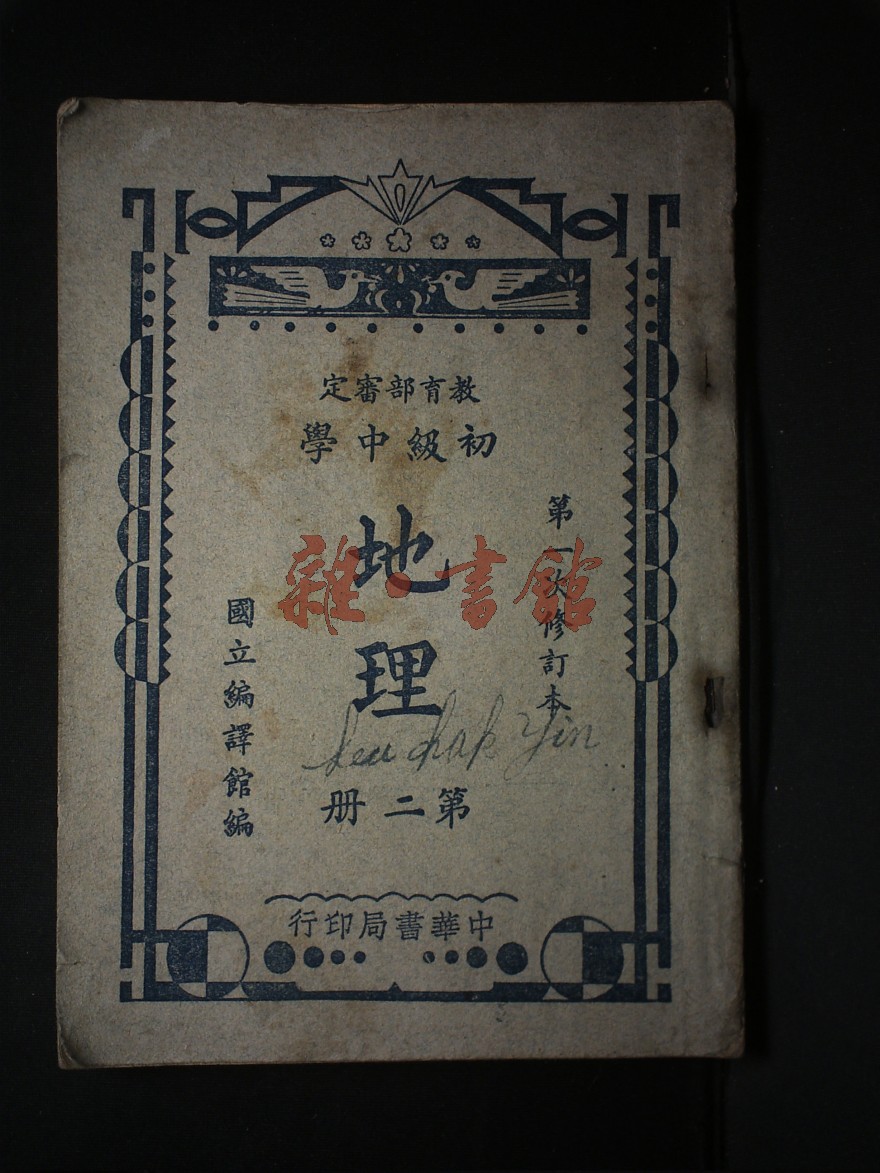 教育部審定
初級中學
第一次修訂本
地理
雜·書館
國立編譯館編
第二册
中華書局印行